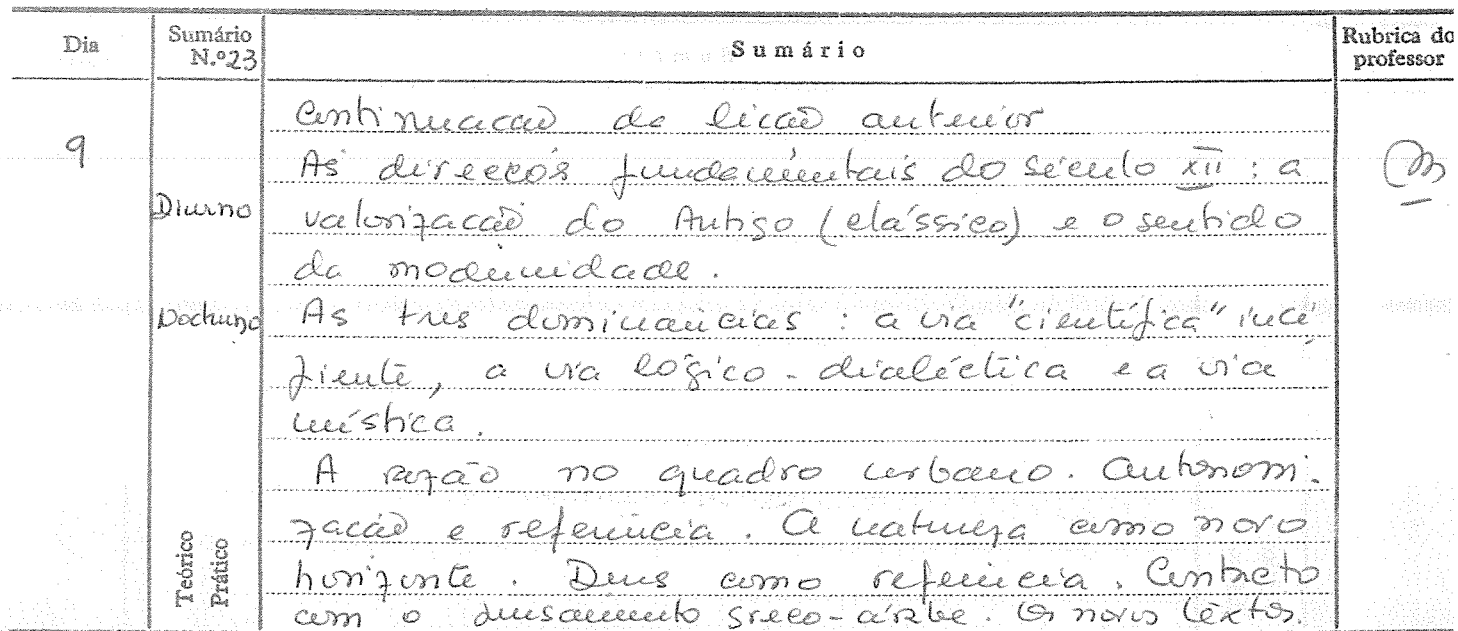 Dia Sumário N.º 23 Sumário Rubrica do professor
Continuação da lição anterior
9 As direcções fundamentais do século XII : a
Diurno valorização do Antigo (clássico) e o sentido
da modernidade.
Nocturno As três dominancias : a via "científica" inci
piente, a via lógico-dialéctica e a via
mística.
A razão no quadro urbano. Autonomi-
zação e referência. A natureza como novo
Teórico Prático horizonte. Deus como referência. Contacto
com o pensamento greco-árabe. Os novos textos.